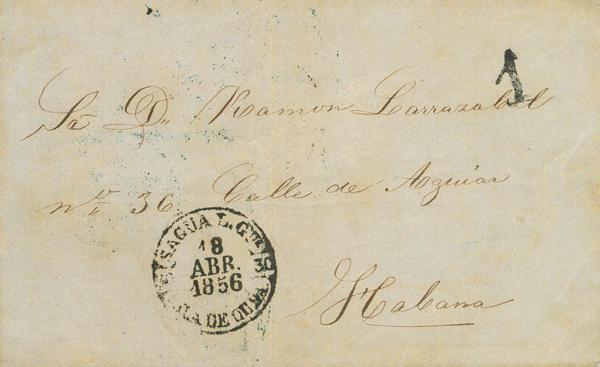 1
Sr. Dn. Ramon Larrazabal
no. 36 Calle de Aguiar
SAGUA L. G.
18
ABR.
1856
ISLA DE CUBA
Habana